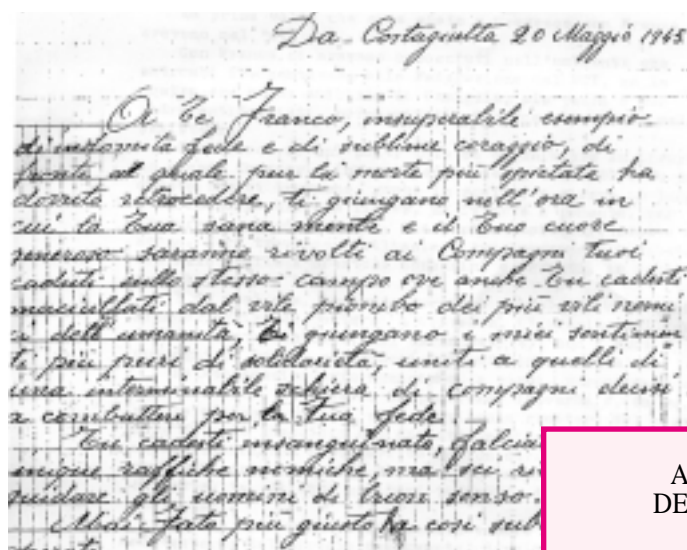 Da Costagiutta 20 Maggio 1945
A Te Franco, insuperabile esempio
di indomita fede e di sublime coraggio, di
fronte al quale pur la morte più spietata ha
dovuto retrocedere, ti giungano nell'ora in
cui la Tua sana mente e il Tuo cuore
generoso saranno rivolti ai Compagni Tuoi
caduti sullo stesso campo ove anche Tu cadesti
maciullati dal vile piombo dei più vili nemi
ci dell'umanità, ti giungano i miei sentimen
ti più puri di solidarietà, uniti a quelli di
una interminabile schiera di compagni decisi
a combattere per la Tua fede
Tu cadesti insanguinato,
inique raffiche nemiche, ma sei
guidare gli uomini di buon senso.
Mai fato più giusto ha così
A
DE